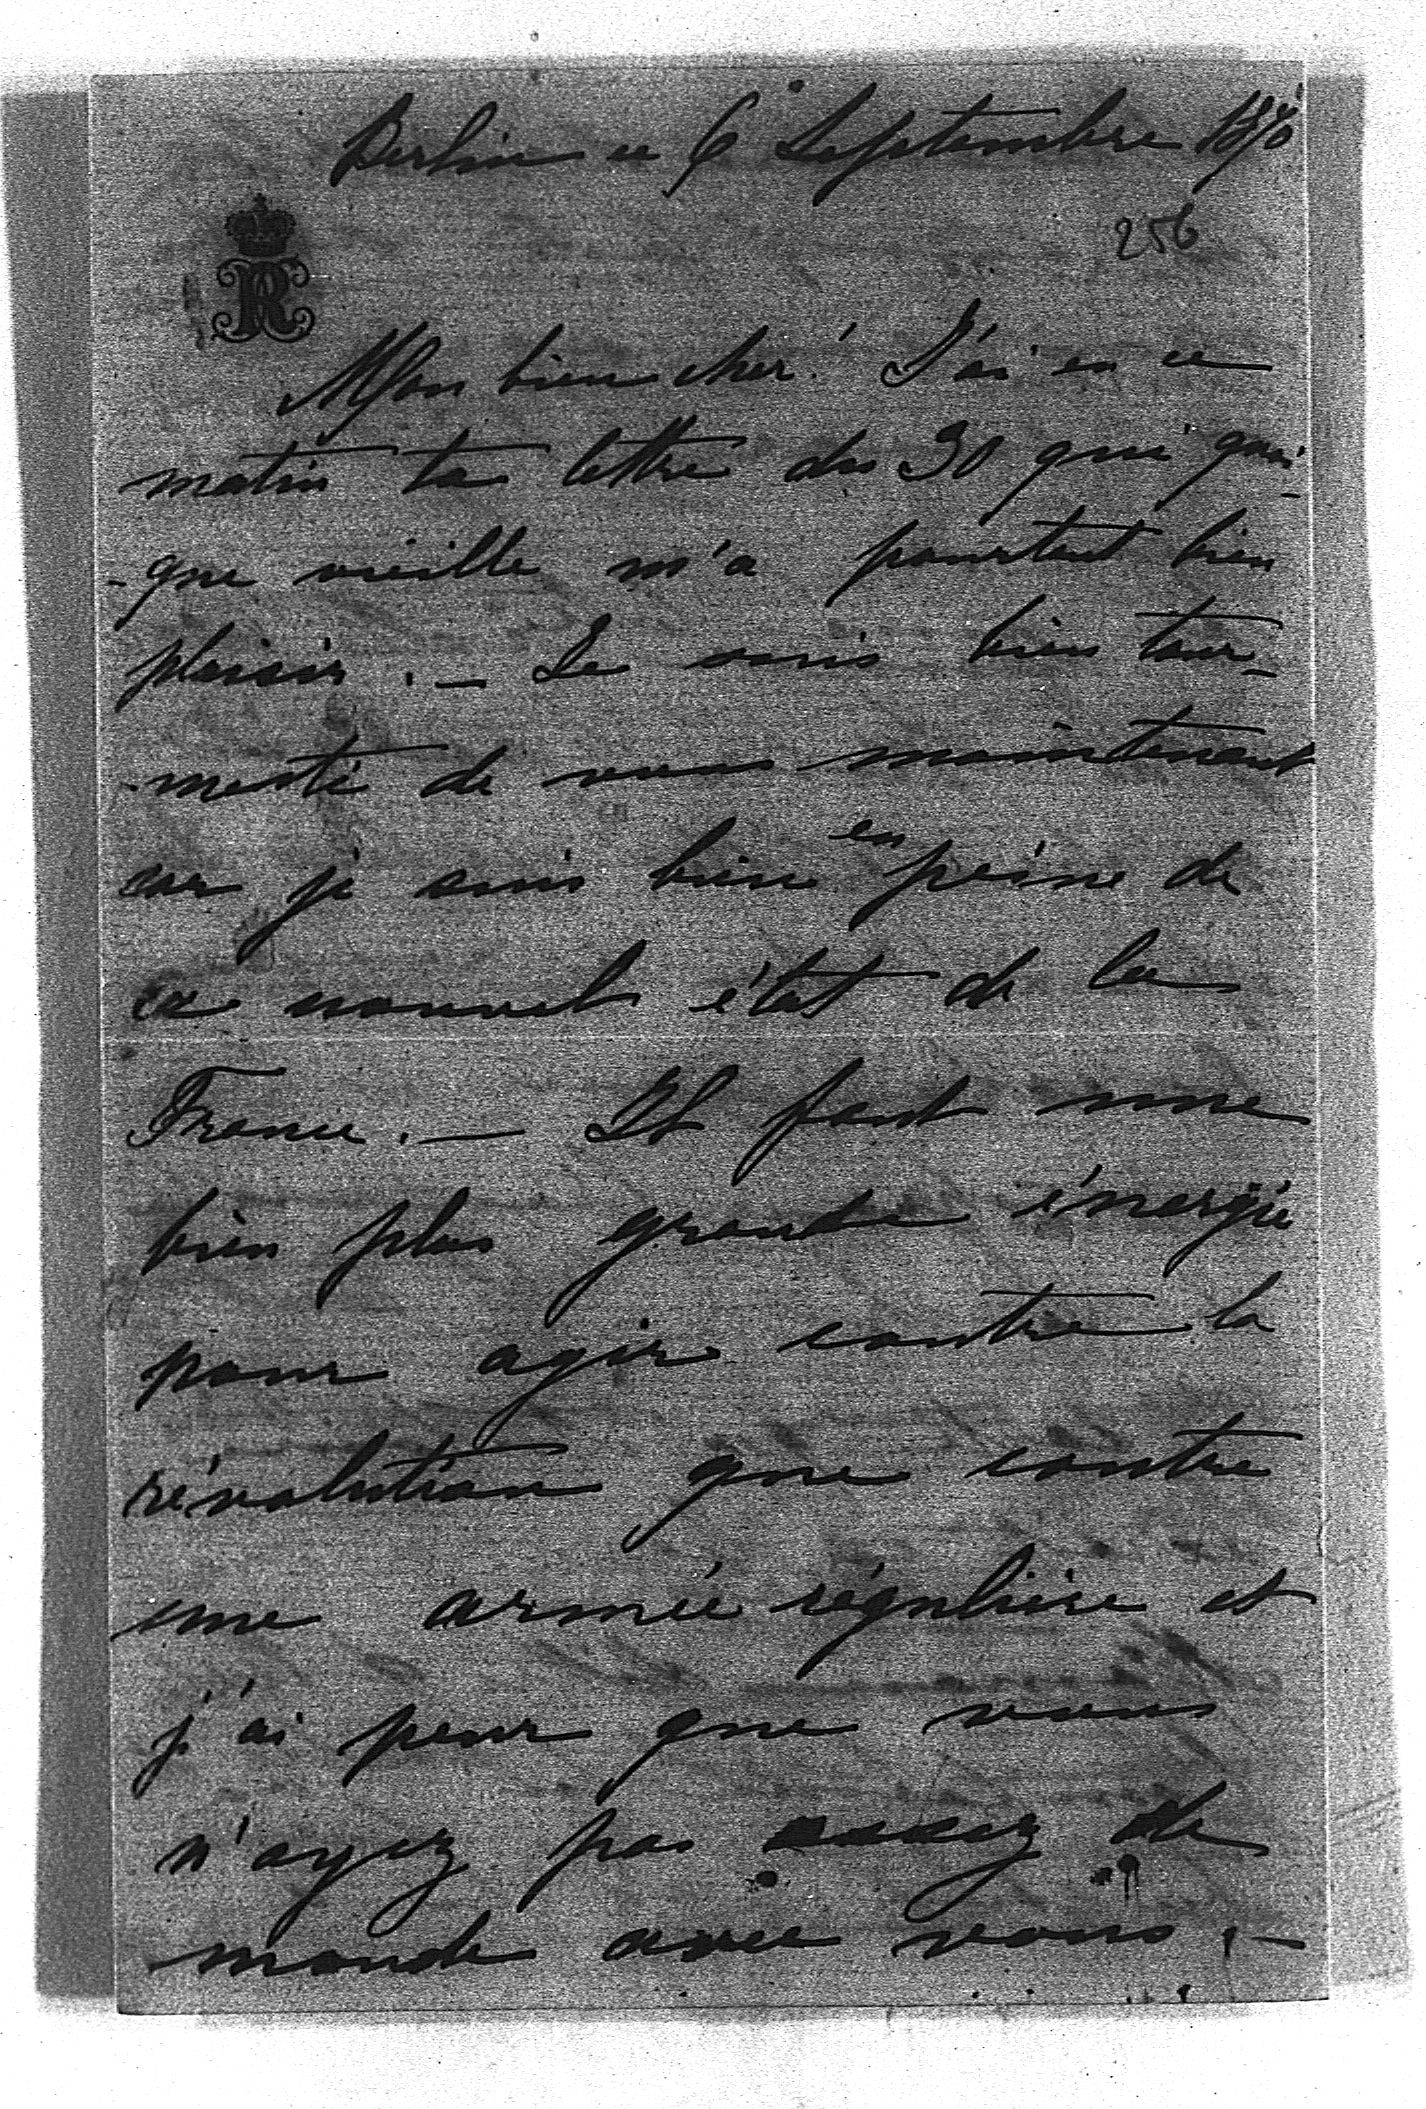 Berlin ce 6 Septembre 1870
256
Mon bien cher! J'ai eu ce
matin ta lettre du 30 qui quoi-
-que vieille m'a pourtant bien
plaisir. — Je suis bien tour-
-menté de vous maintenant
car je suis bien en peine de
ce nouvel état de la
France. — Il faut une
bien plus grande énergie
pour agir contre la
révolution que contre
une armée régulière et
j'ai peur que vous
n'ayez pas assez de
monde avec vous. —